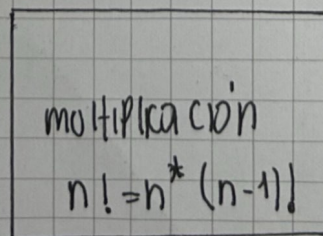 multiplicación
n! = n* (n-1)!